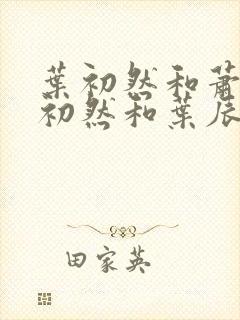 葉初然和蕭
初然和葉辰
田家英